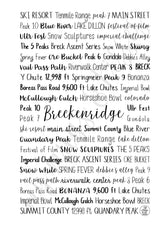 SKI RESORT Tenmile Range peak 7 MAIN STREET
Peak 10 Blue River LAKE DILLON festival of film
Ullr Fest Snow Sculptures imperial challenge
The 5 Peaks Breck Ascent Series Snow White Skiway
Spring Fever Ore Bucket Peak 6 Gondola Debbie's Alley
Vail Pass Path Riverwalk Center PEAK 8 BRECK
Y Chute 12,998 ft Springmeier Peak 9 Bonanza
Boreas Pass Road 9,600 FT Lake Chutes Imperial
McCullough Gulch Horseshoe Bowl colorado
Peak 10 Ullr Fest
Peak 7 Breckenridge Gondola
the ski resort main street Summit County Blue River
Quandary Peak Tenmile Range festival of film
SNOW SCULPTURES THE 5 PEAKS
Imperial Challenge BRECK ASCENT SERIES ORE BUCKET
snow white SPRING FEVER debbie's alley Peak 9
vail pass path riverwalk center peak 8
Boreas Pass Road BONANZA 9,600 FT Lake Chutes
Imperial McCullough Gulch Horseshoe Bowl BRECK
SUMMIT COUNTY 12,998 FT. QUANDARY PEAK